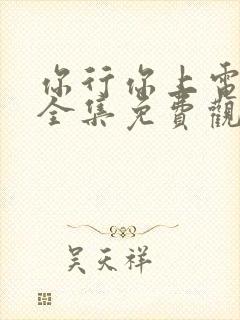 你行你上電
全集免費觀
吳天祥